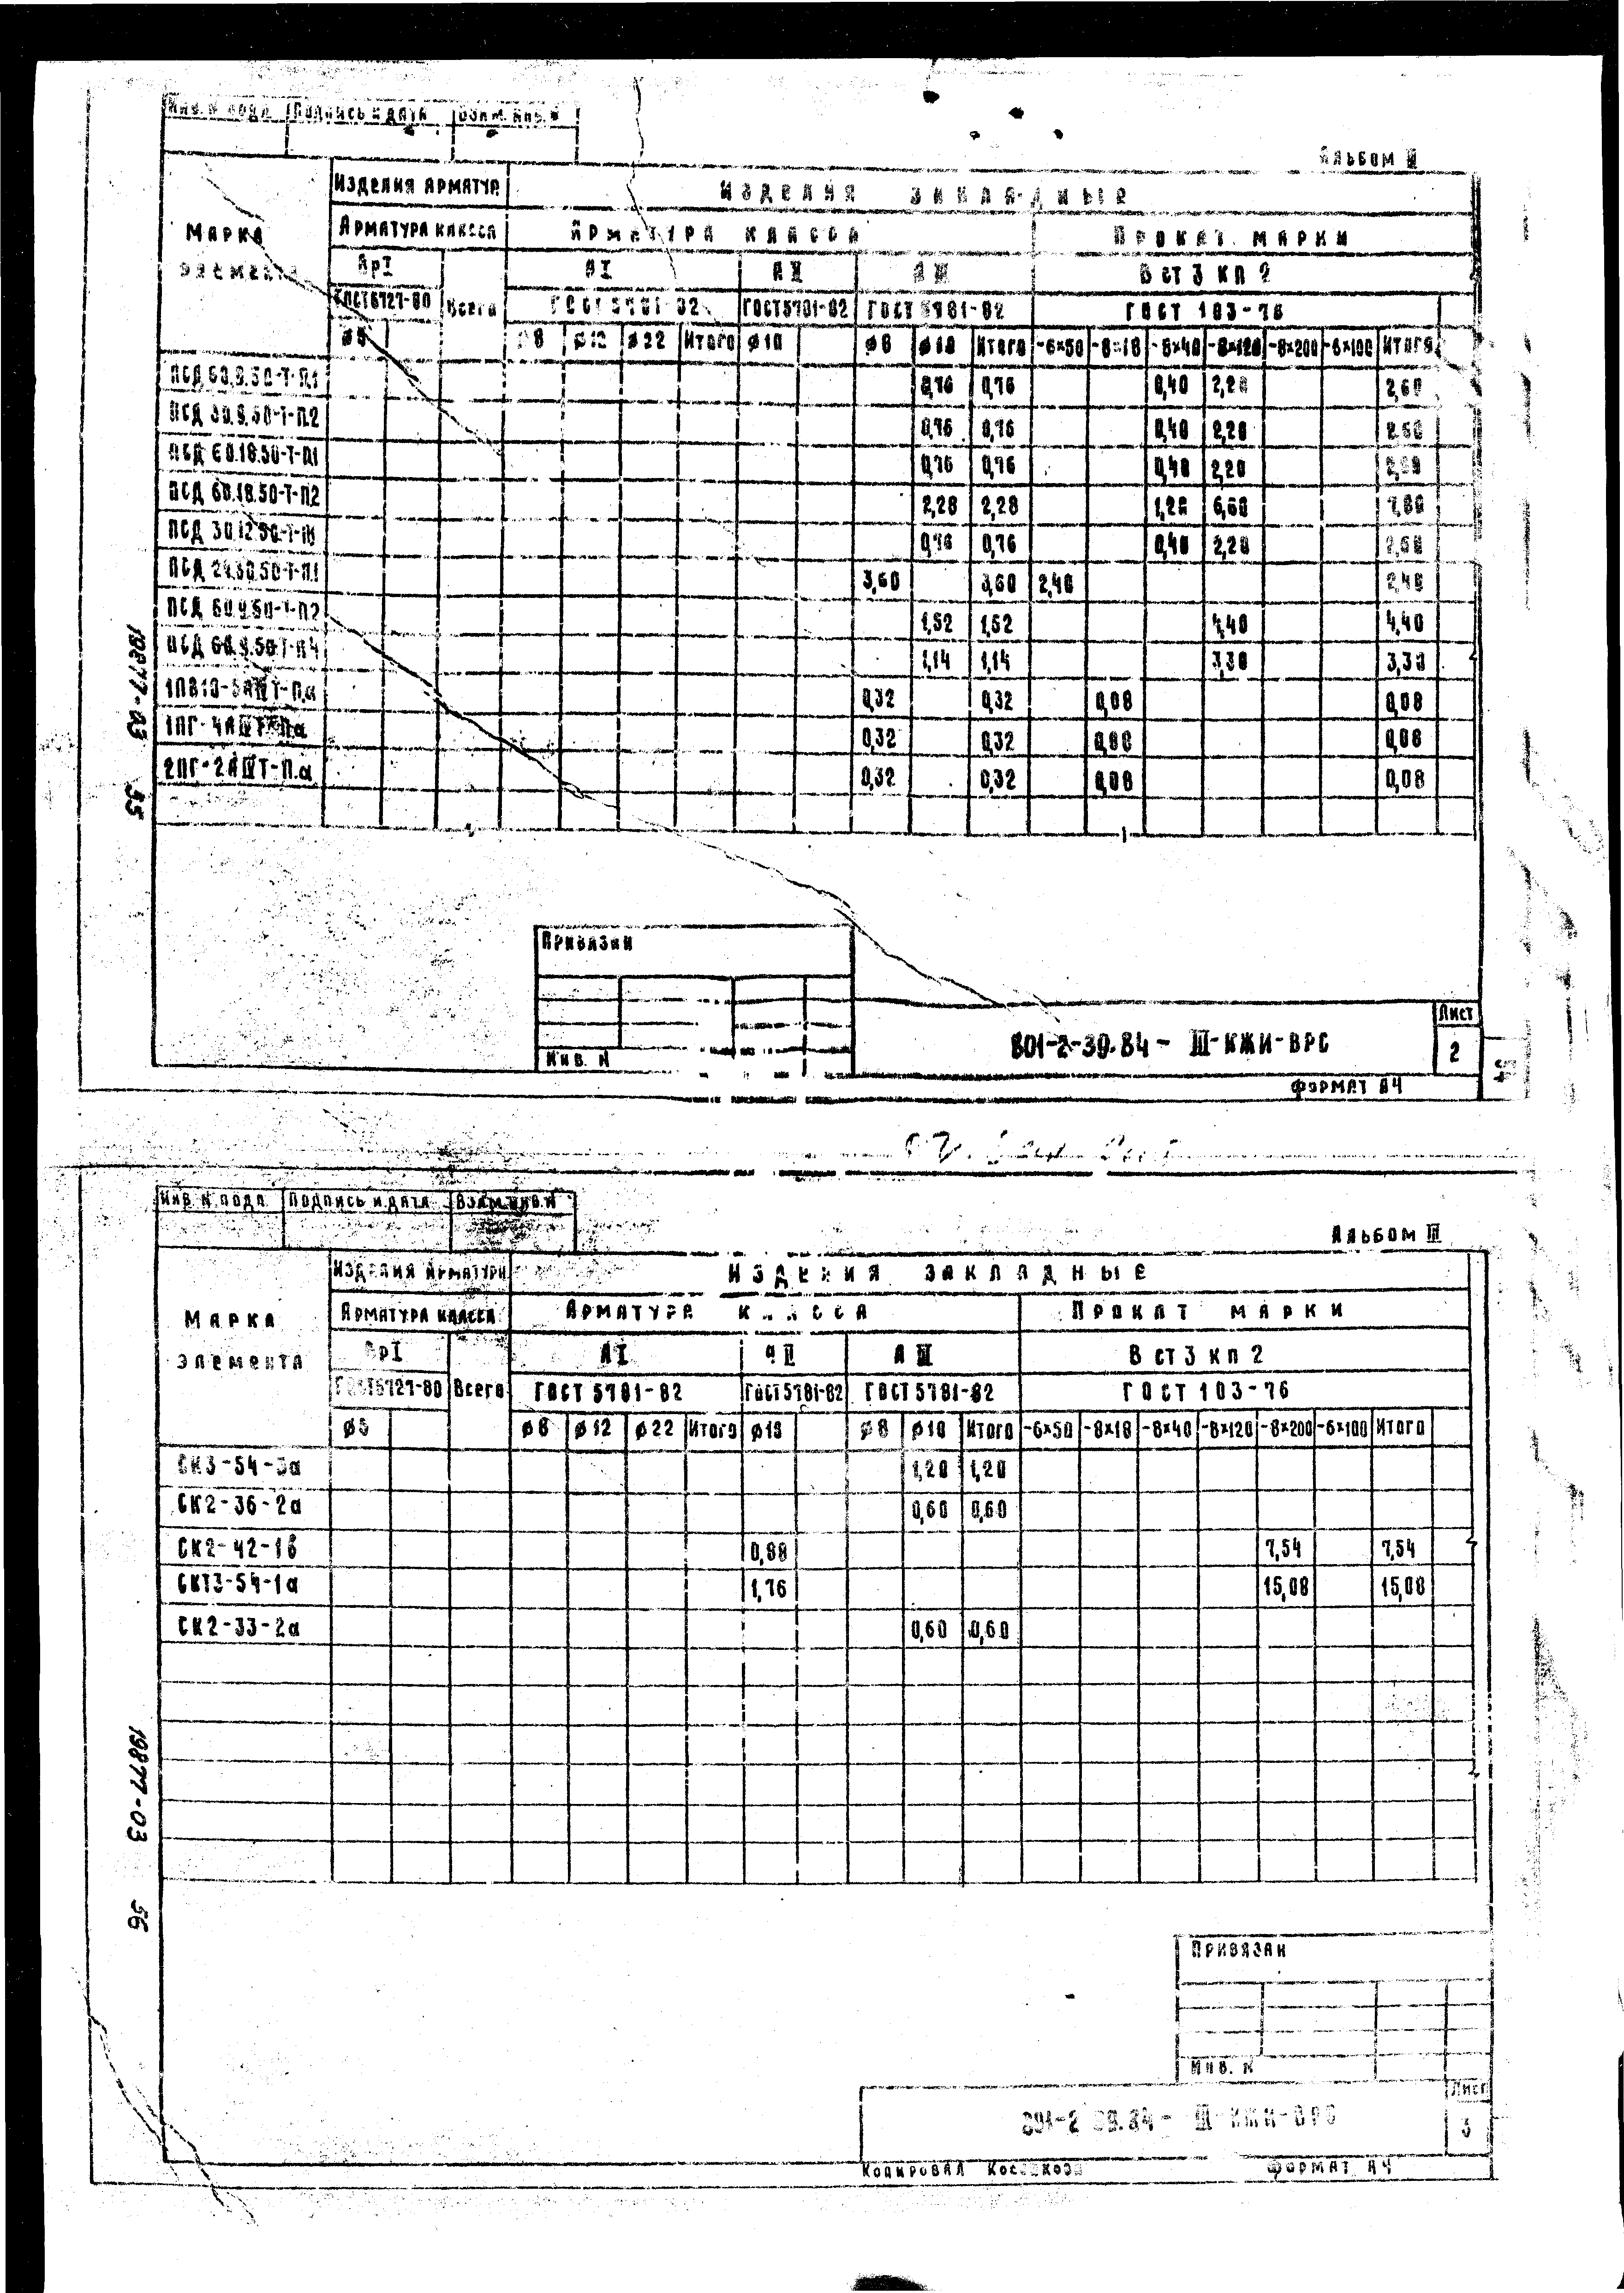 Инв. № подл. Подпись и дата Взам. инв. №
Альбом III
Изделия арматур. Изделия закладные
Марка элемента Арматура класса Арматура класса Прокат марки
ВрI АI АII АIII В ст 3 кп 2
ГОСТ 6727-80 Всего ГОСТ 5781-82 ГОСТ 5781-82 ГОСТ 5781-82 ГОСТ 103-76
ø5 ø8 ø12 ø22 Итого ø10 ø8 ø10 Итого -6×50 -8×18 -8×40 -8×120 -8×200 -6×100 Итого
ПСД 60.9.50-Т-П.1 0,76 0,76 0,40 2,20 2,60
ПСД 30.9.50-Т-П.2 0,76 0,76 0,40 2,20 2,60
ПСД 60.18.50-Т-П.1 0,76 0,76 0,40 2,20
ПСД 60.18.50-Т-П2 2,28 2,28 1,20 6,60 7,80
ПСД 30.12.50-Т-П1 0,76 0,76 0,40 2,20 2,60
ПСД 24.30.50-Т-П.1 3,60 3,60 2,40 2,40
ПСД 60.9.50-Т-П2 1,52 1,52 4,40 4,40
ПСД 60.9.50-Т-П4 1,14 1,14 3,30 3,30
1ПВ10-5АIVТ-П.а 0,32 0,32 0,08 0,08
1ПГ-4АIVТ-П.а 0,32 0,32 0,08 0,08
2ПГ-2АIVТ-П.а 0,32 0,32 0,08 0,08
19877-03 55
Привязан
Инв. №
801-2-39.84 - III-КЖИ-ВРС
Лист
2
Формат А4
Инв. № подл. Подпись и дата Взам. инв. №
Альбом III
Изделия арматурн. Изделия закладные
Марка элемента Арматура класса Арматура класса Прокат марки
ВрI АI АII АIII В ст 3 кп 2
ГОСТ 6727-80 Всего ГОСТ 5781-82 ГОСТ 5781-82 ГОСТ 5781-82 ГОСТ 103-76
ø5 ø8 ø12 ø22 Итого ø10 ø8 ø10 Итого -6×50 -8×18 -8×40 -8×120 -8×200 -6×100 Итого
СК3-54-3а 1,20 1,20
СК2-36-2а 0,60 0,60
СК2-42-1б 0,88 7,54 7,54
СКТ3-54-1а 1,76 15,08 15,08
СК2-33-2а 0,60 0,60
19877-03 56
Привязан
Инв. №
801-2-39.84 - III-КЖИ-ВРС
Лист
3
Копировал
Формат А4